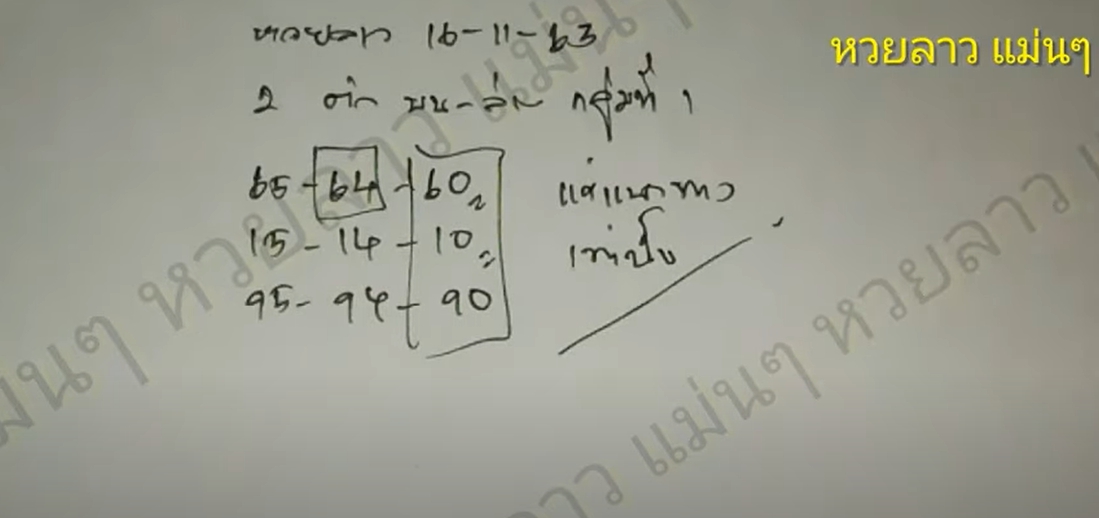 หวยลาว 16-11-63
หวยลาว แม่นๆ
2 ตัว บน-ล่าง กลุ่มที่ 1
65-64-60
15-14-10
95-94-90
แค่แนวทาง
เท่านั้น
หวยลาว แม่นๆ
แม่นๆ หวยลาว